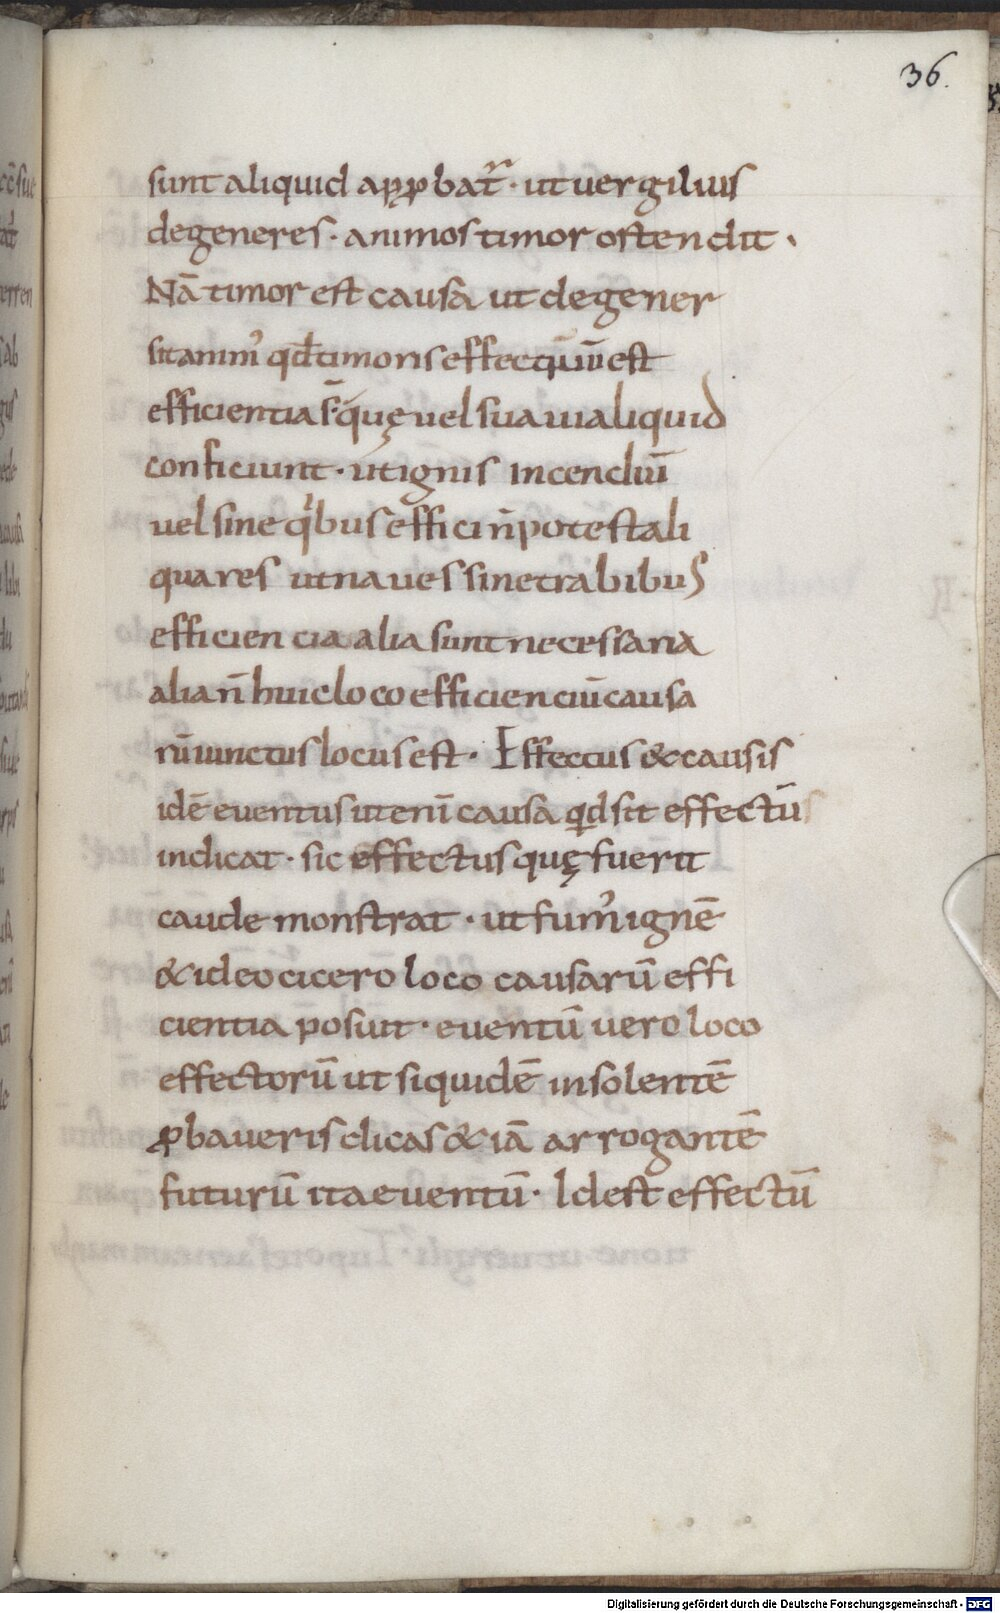 36.
sunt aliquid apꝓbat᷑ · ut uergilius
degeneres · animos timor ostendit ·
Nā timor est causa ut degener
sit anim᾿ qđ timoris effectūū est
efficientia s̄ quę uel sua ui aliquid
conficiunt · ut ignis incendiū
uel sine qͥbus effici n̄ potest ali
qua res ut naues sine trabibus
efficiencia alia sunt necessaria
alia n̄ huic loco efficienciū causa
rū iunctus locus est · Effectus & causis
idē euentus ut enī causa quid sit effectū
indicat · sic effectus quę fuerit
caude monstrat · ut fum᾿ ignē
& ideo cicero loco causarū effi
cientia posuit · euentū uero loco
effectorū ut siquidē insolentē
ꝓbaueris dicas & iā arrogantē
futurū ita euentū · Id est effectū
Digitalisierung gefördert durch die Deutsche Forschungsgemeinschaft - DFG